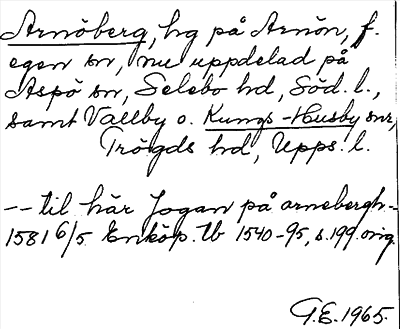 Arnöberg, hg på Arnön, f.
egen sn, nu uppdelad på
Aspö sn, Selebo hd, Söd. l.,
samt Vallby o. Kungs-Husby snr,
Trögds hd, Upps. l.
-- til här Jogan på arnebergh -
1581 6/5 Enköp. tb 1540-95, s. 199. orig.
G.E. 1965.